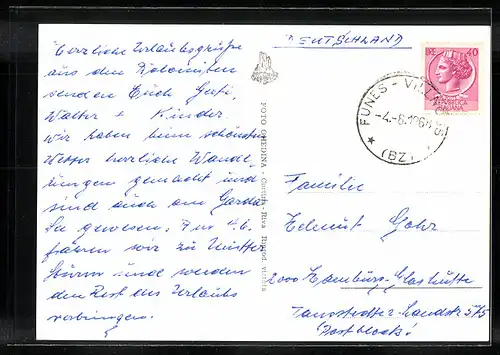 Herrliche Urlaubsgrüße
aus den Dolomiten
senden Euch
Walter + Kinder.
Wir haben beim schönsten
Wetter herrliche Wande-
rungen gemacht und
sind auch am Garda-
See gewesen. Am 4.6.
fahren wir zu Mutter
Sturm und werden
den Rest des Urlaubs
verbringen.
FOTO GHEDINA - Cortina Riva Riprod. vietata
DEUTSCHLAND
40
REPUBBLICA
ITALIANA
★ FUNES - VILLNÖSS
(BZ)
Familie
Helmut Gohr
2000 Hamburg-Glashütte
Tangstedter-Landstr 575